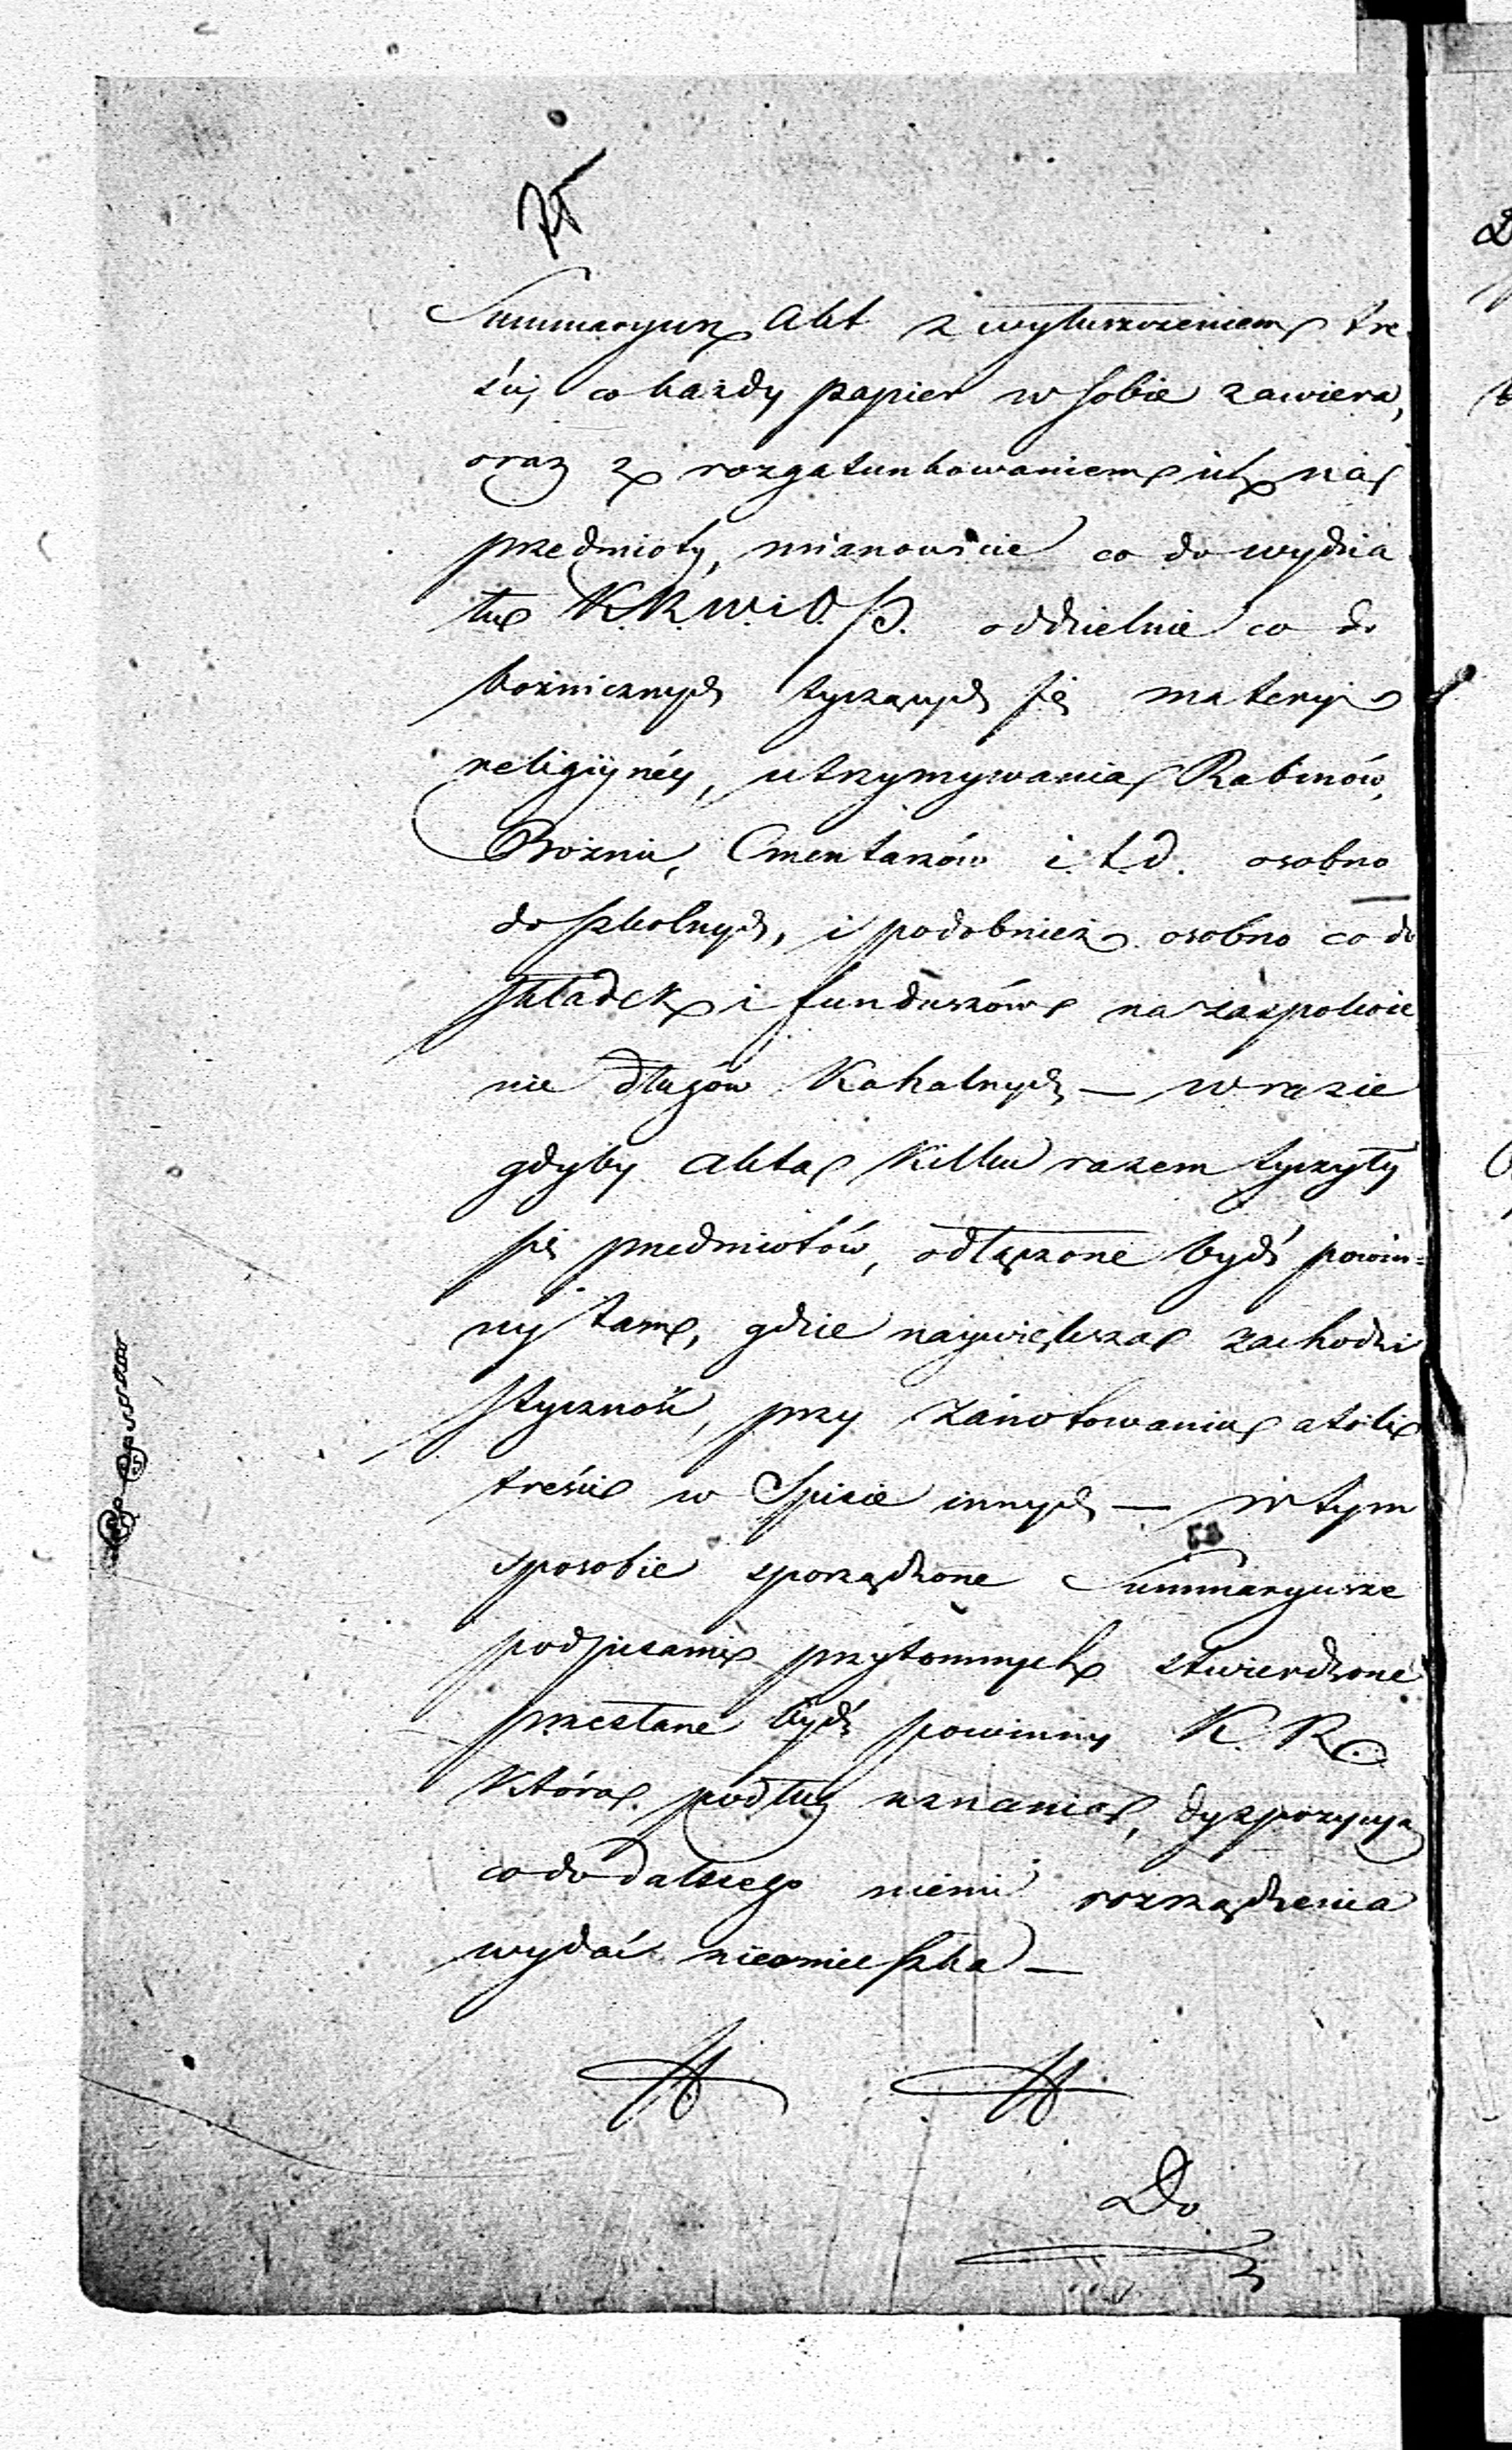 75
Summaryusz Akt z wyłuszczeniem tre-
ści, co każdy papier w sobie zawiera,
oraz z rozgatunkowaniem ich na
przedmioty, mianowicie co do wydzia
łu K.R.W.i O.P. oddzielnie co do
bożnicznych tyczących się materyi
religijnéy, utrzymywania Rabinów,
Bożnic, Cmentarzów i.t.d. osobno
do szkolnych, i podobnież osobno co do
składek i funduszów na zaspokoie
nie długów Kahalnych — w razie
gdyby akta kilku razem tyczyły
się przedmiotów, odłączone bydź powin=
ny tam, gdzie naywiększa zachodzi
styczność, przy zanotowaniu atoli
treści w Spisie innych — W tym
sposobie sporządzone Summaryusze
podpisami przytomnych stwierdzone
przesłane bydź powinny K. R.
która podług uznania, dyspozycyą
co do dalszego niemi rozrządzenia
wydać nieomieszka —
Do